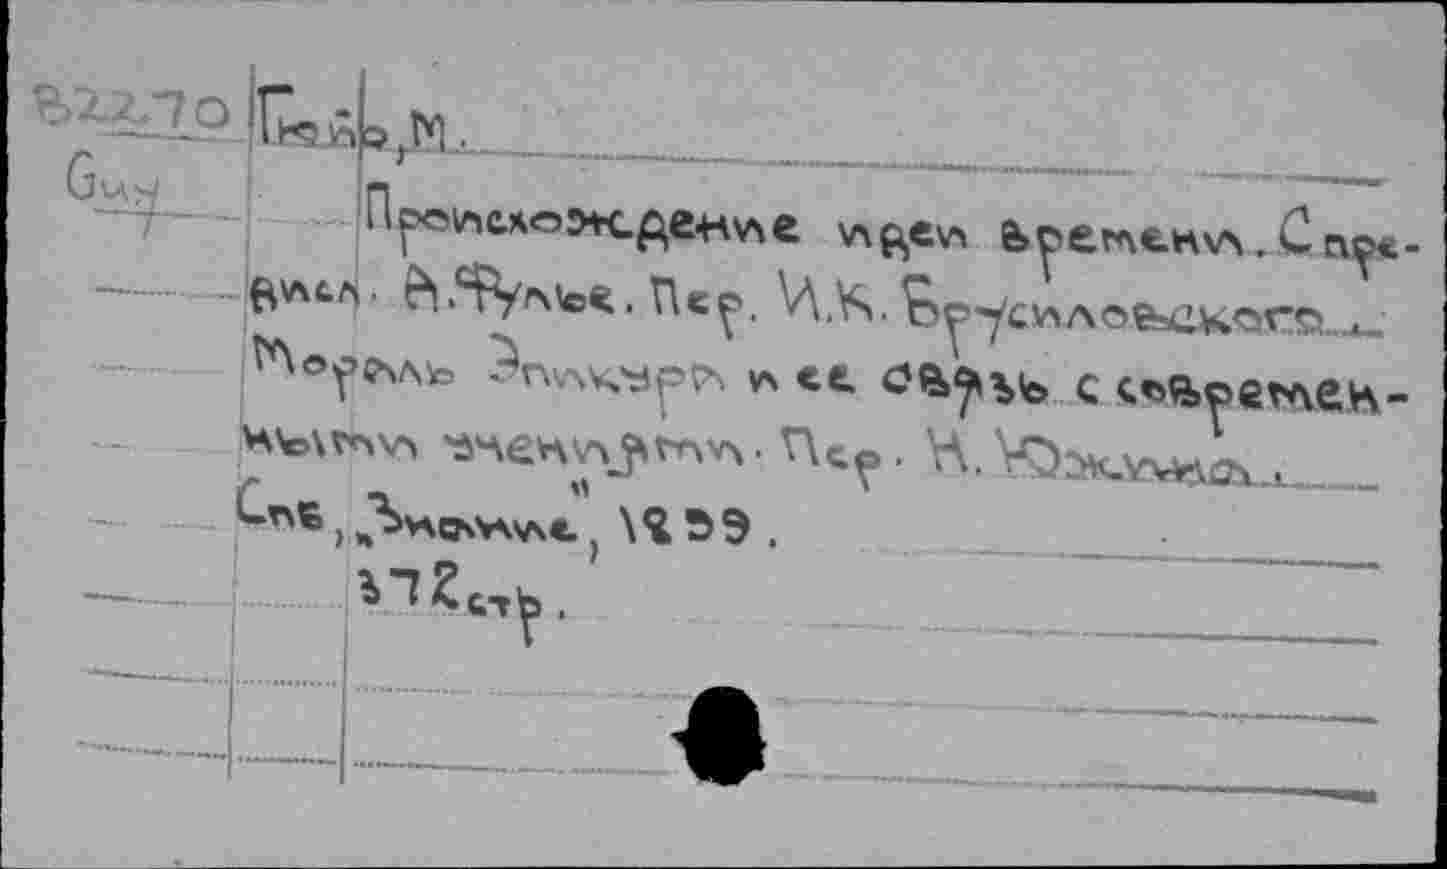 822.70 Гюйо, М.
Guy
Происхождение идеи времени. С пре-
дисл. А. Фулье. Пер. И.К. Брусиловского.
Мораль Эпикура и ее связь с современ-
ными учениями. Пер. Н. Южина.
Спб, „Знание", 1899.
372 стр.